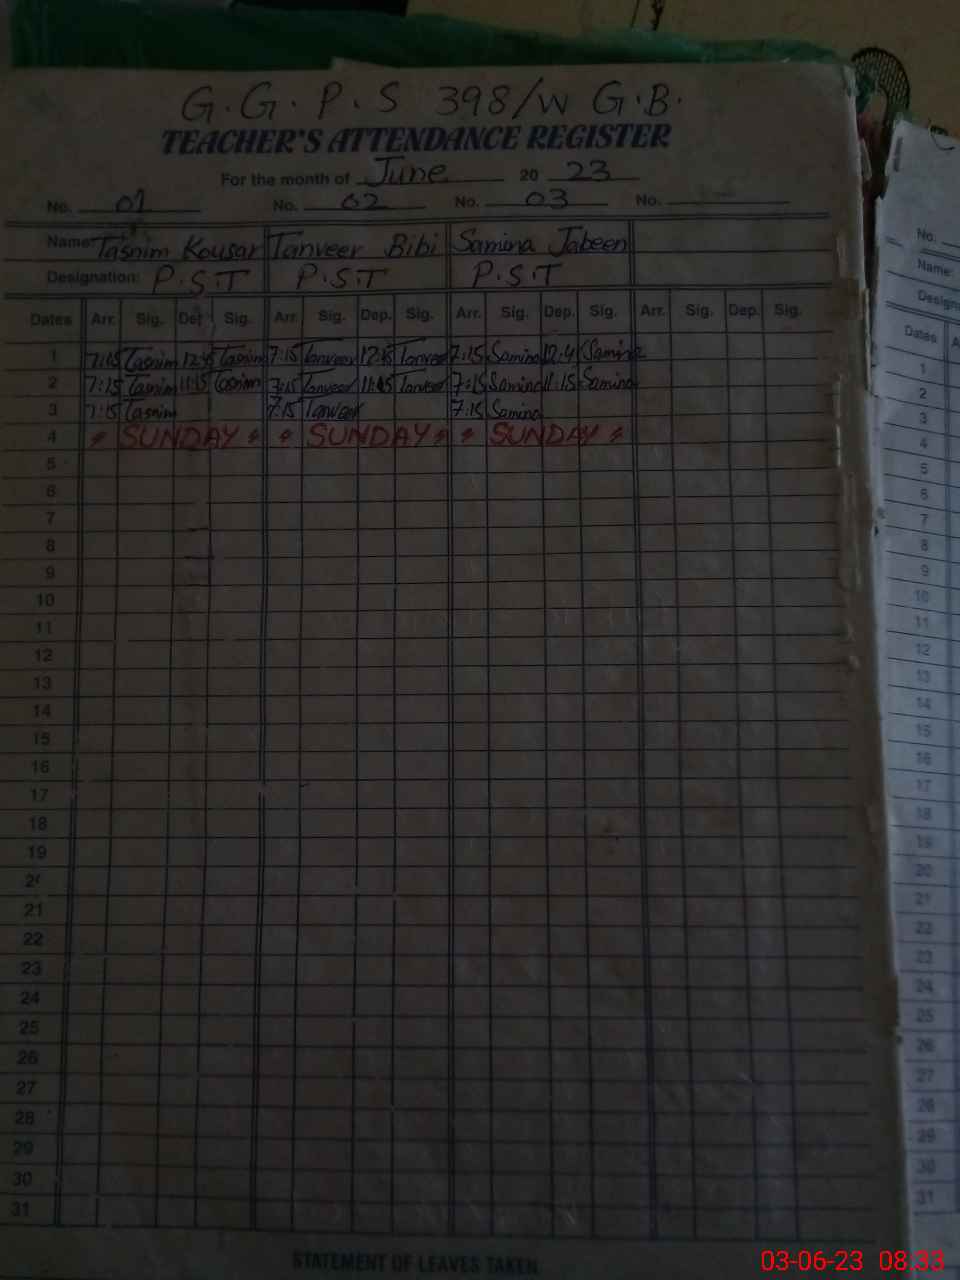 G.G.P.S 398/W G.B.
TEACHER'S ATTENDANCE REGISTER
For the month of June 20 23
No. 01 No. 02 No. 03 No.
Name: Tasnim Kousar Tanveer Bibi Samina Jabeen
Designation: P.S.T P.S.T P.S.T
Dates Arr. Sig. Dep. Sig. Arr. Sig. Dep. Sig. Arr. Sig. Dep. Sig. Arr. Sig. Dep. Sig.
1 7:15 Tasnim 12:45 Tasnim 7:15 Tanveer 12:45 Tanveer 7:15 Samina 12:4 Samina
2 7:15 Tasnim 11:15 Tasnim 7:15 Tanveer Tanveer 7:15 Samina 11:15 Samina
3 7:15 Tasnim 7:15 Tanveer 7:15 Samina
4 SUNDAY SUNDAY SUNDAY
5
6
7
8
9
10
11
12
13
14
15
16
17
18
19
20
21
22
23
24
25
26
27
28
29
30
31
STATEMENT OF LEAVES TAKEN
No.
Name:
Design
Dates A
1
2
3
4
5
6
7
8
9
10
11
12
13
14
15
16
17
18
19
20
21
22
23
24
25
26
27
28
29
30
31
03-06-23 08:33